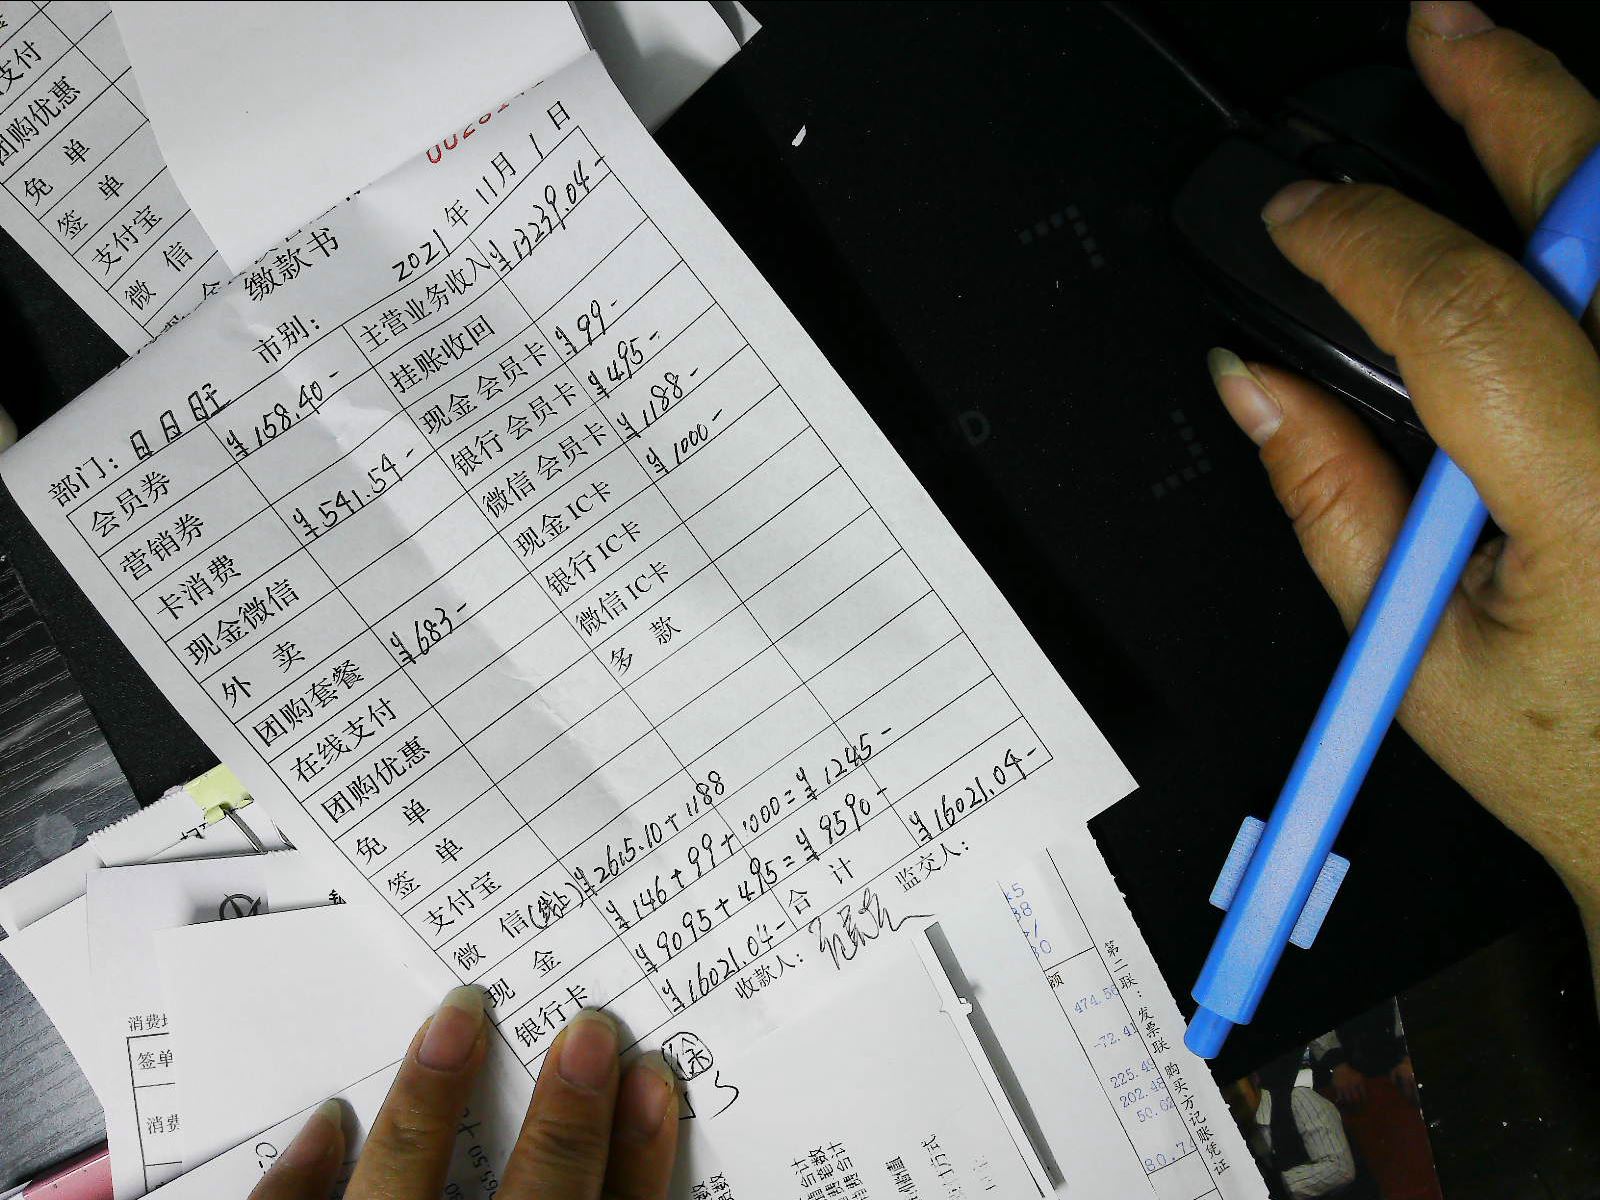 支付
团购优惠
免 单
签 单
支付宝
微 信
缴款书
市别： 2021年 11月 1 日
部门：日日旺
会员券 ¥158.40- 主营业务收入 ¥13239.04-
营销券 挂账收回
卡消费 ¥541.54- 现金会员卡 ¥99-
现金微信 银行会员卡 ¥495-
外 卖 微信会员卡 ¥1188-
团购套餐 ¥683- 现金IC卡 ¥1000-
在线支付 银行IC卡
团购优惠 微信IC卡
免 单 多 款
签 单
支付宝
微 信 ¥2615.10+1188
现 金 ¥146+99+1000=¥1245-
银行卡 ¥9095+495=¥9590-
¥16021.04- 合 计 ¥16021.04-
收款人： 监交人：
徐
消费
签单
消费
额
474.56
-72.41
225.49
202.48
50.02
80.7
第二联：发票联 购买方记账凭证